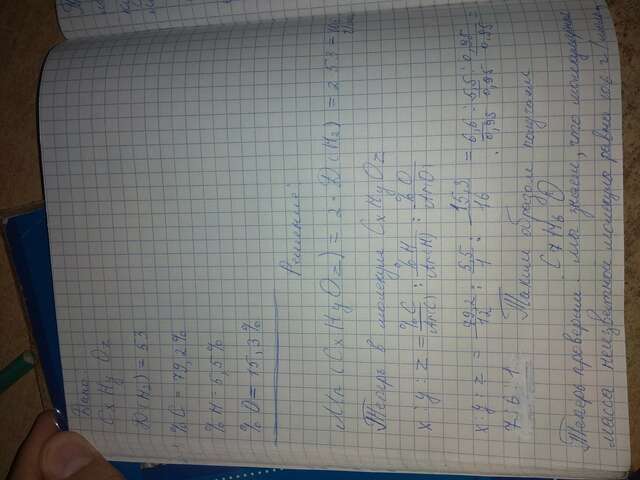 Дано
CxHy Oz
D(H2) = 53
% C = 79,2%
% H = 5,5%
% O = 15,3%
Решение:
Mr (CxHyOz) = 2 · D (H2) = 2·53 =
Теперь в молекуле CxHyOz
x : y : z = %C/Ar(C) : %H/Ar(H) : %O/Ar(O)
x : y : z = 79,2/12 : 5,5/1 : 15,3/16 = 6,6/0,95 : 5,5/0,95 : 0,95/0,95 =
7 : 6 : 1
Таким образом получаем
C7H6O
Теперь проверим. Мы знаем, что молекулярная
масса неизвестной молекулы равна 106 г/моль